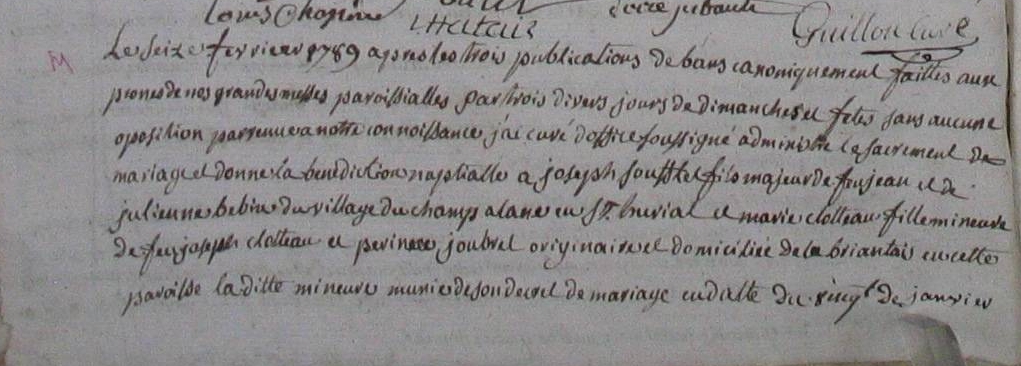 Louis Chopin
Hatais
Guillou curé
M
Le seize fevrier 1789 apres les trois publications de bans canoniquement faittes aux
prones de nos grandes messes paroissialles par trois divers jours de dimanches et fetes sans aucune
oposition parvenue a notre connoissance, j'ai curé d'office soussigné administré le sacrement de
mariage et donne la benediction nuptialle a joseph fils majeur de feu jean et de
julienne bebin du village du champs alane en St. hurial et marie clotteau fille mineure
de feu joseph clotteau et perinne joubrel originaire et domiciliée de la briantais en cette
paroisse la ditte mineure munie de son decret de mariage en datte du vingt de janvier